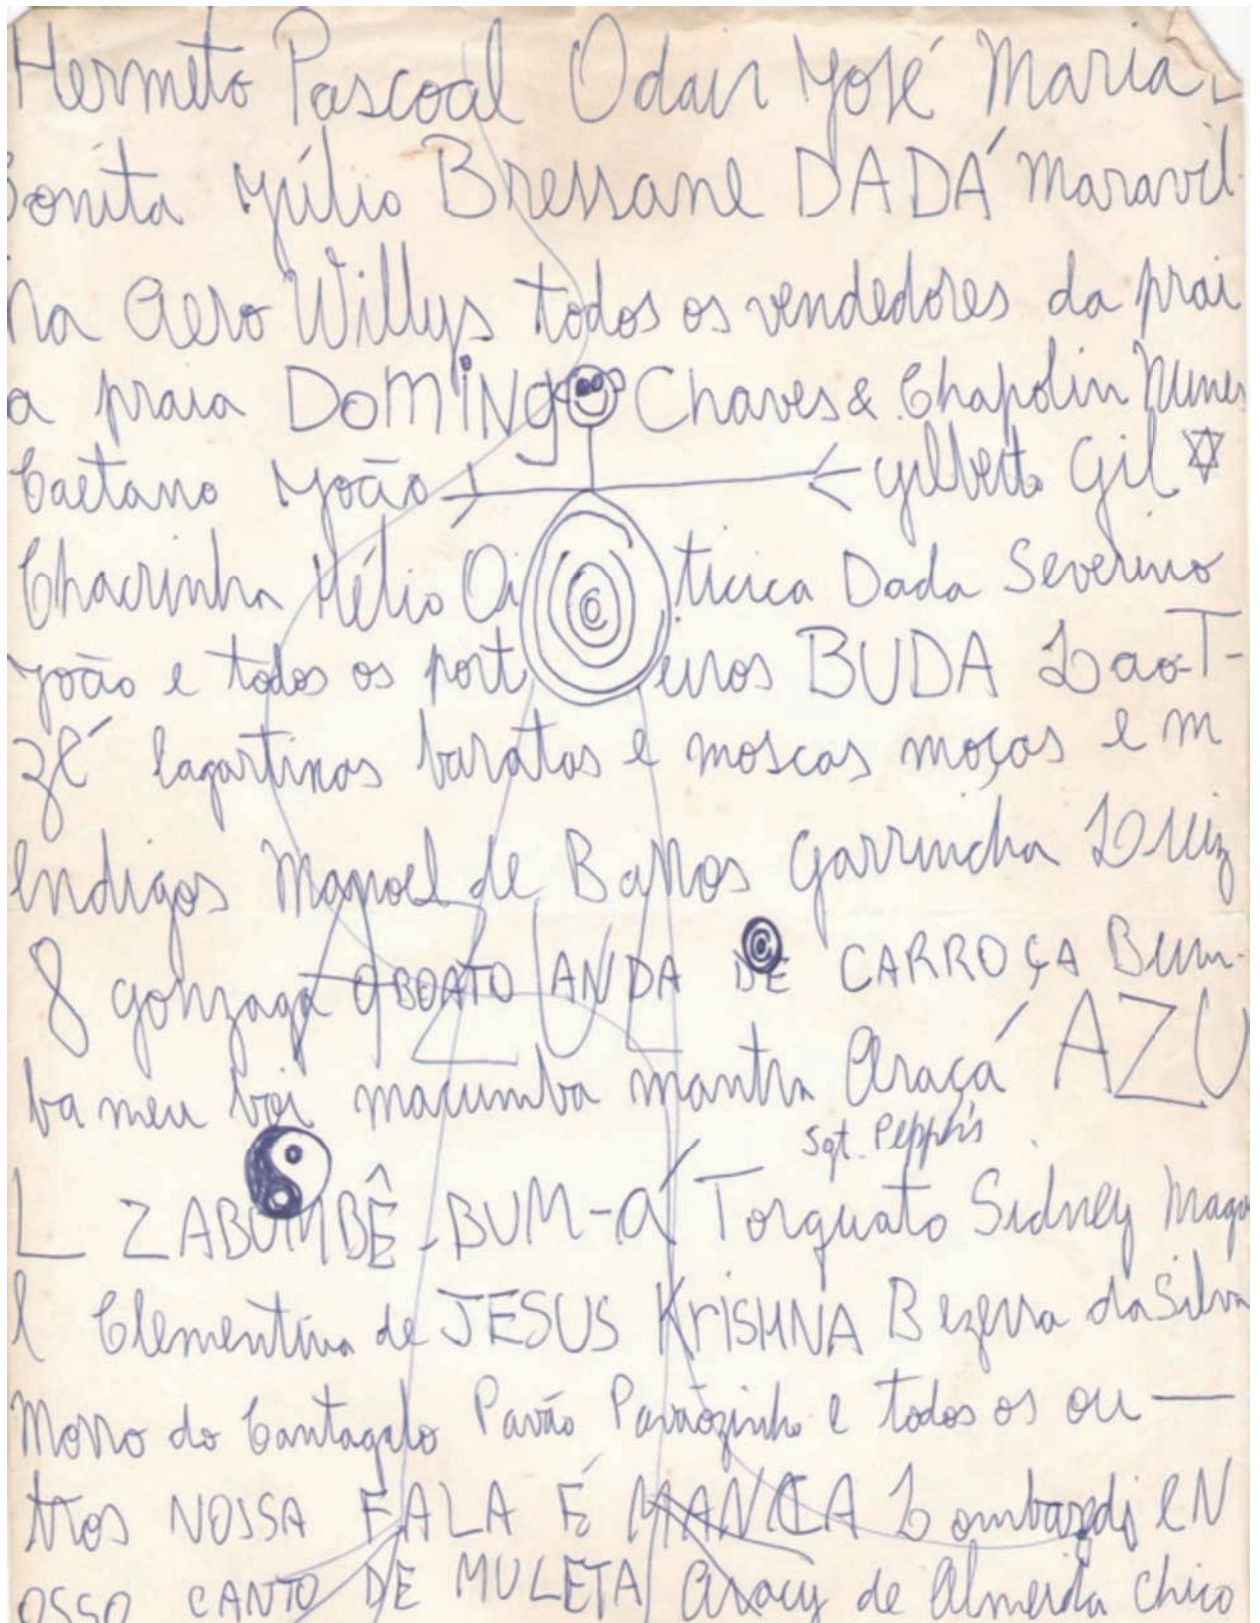 Hermeto Pascoal Odair José Maria
Bonita Júlio Bressane DADÁ Maravil-
ha Aero Willys todos os vendedores da prai
a praia DOMiNgO Chaves & Chapolin Nunes
Caetano João Gilberto Gil
Chacrinha Hélio Oiticica Dada Severino
João e todos os porteiros BUDA Lao-T-
zé lagartixas baratas e moscas moças e m
endigos Manoel de Barros Garrincha Luiz
8 Gonzaga O BOATO ANDA DE CARROÇA Bum-
AZUL
ba meu boi macumba mantra Araçá AZU
Sgt. Peppers
L ZABUMBÊ-BUM-Á Torquato Sidney Maga
l Clementina de JESUS KRISHNA Bezerra da Silva
Morro do Cantagalo Pavão Pavãozinho e todos os ou—
tros NOSSA FALA É MANCA Lombardi e N
OSSO CANTO DE MULETA Aracy de Almeida Chico